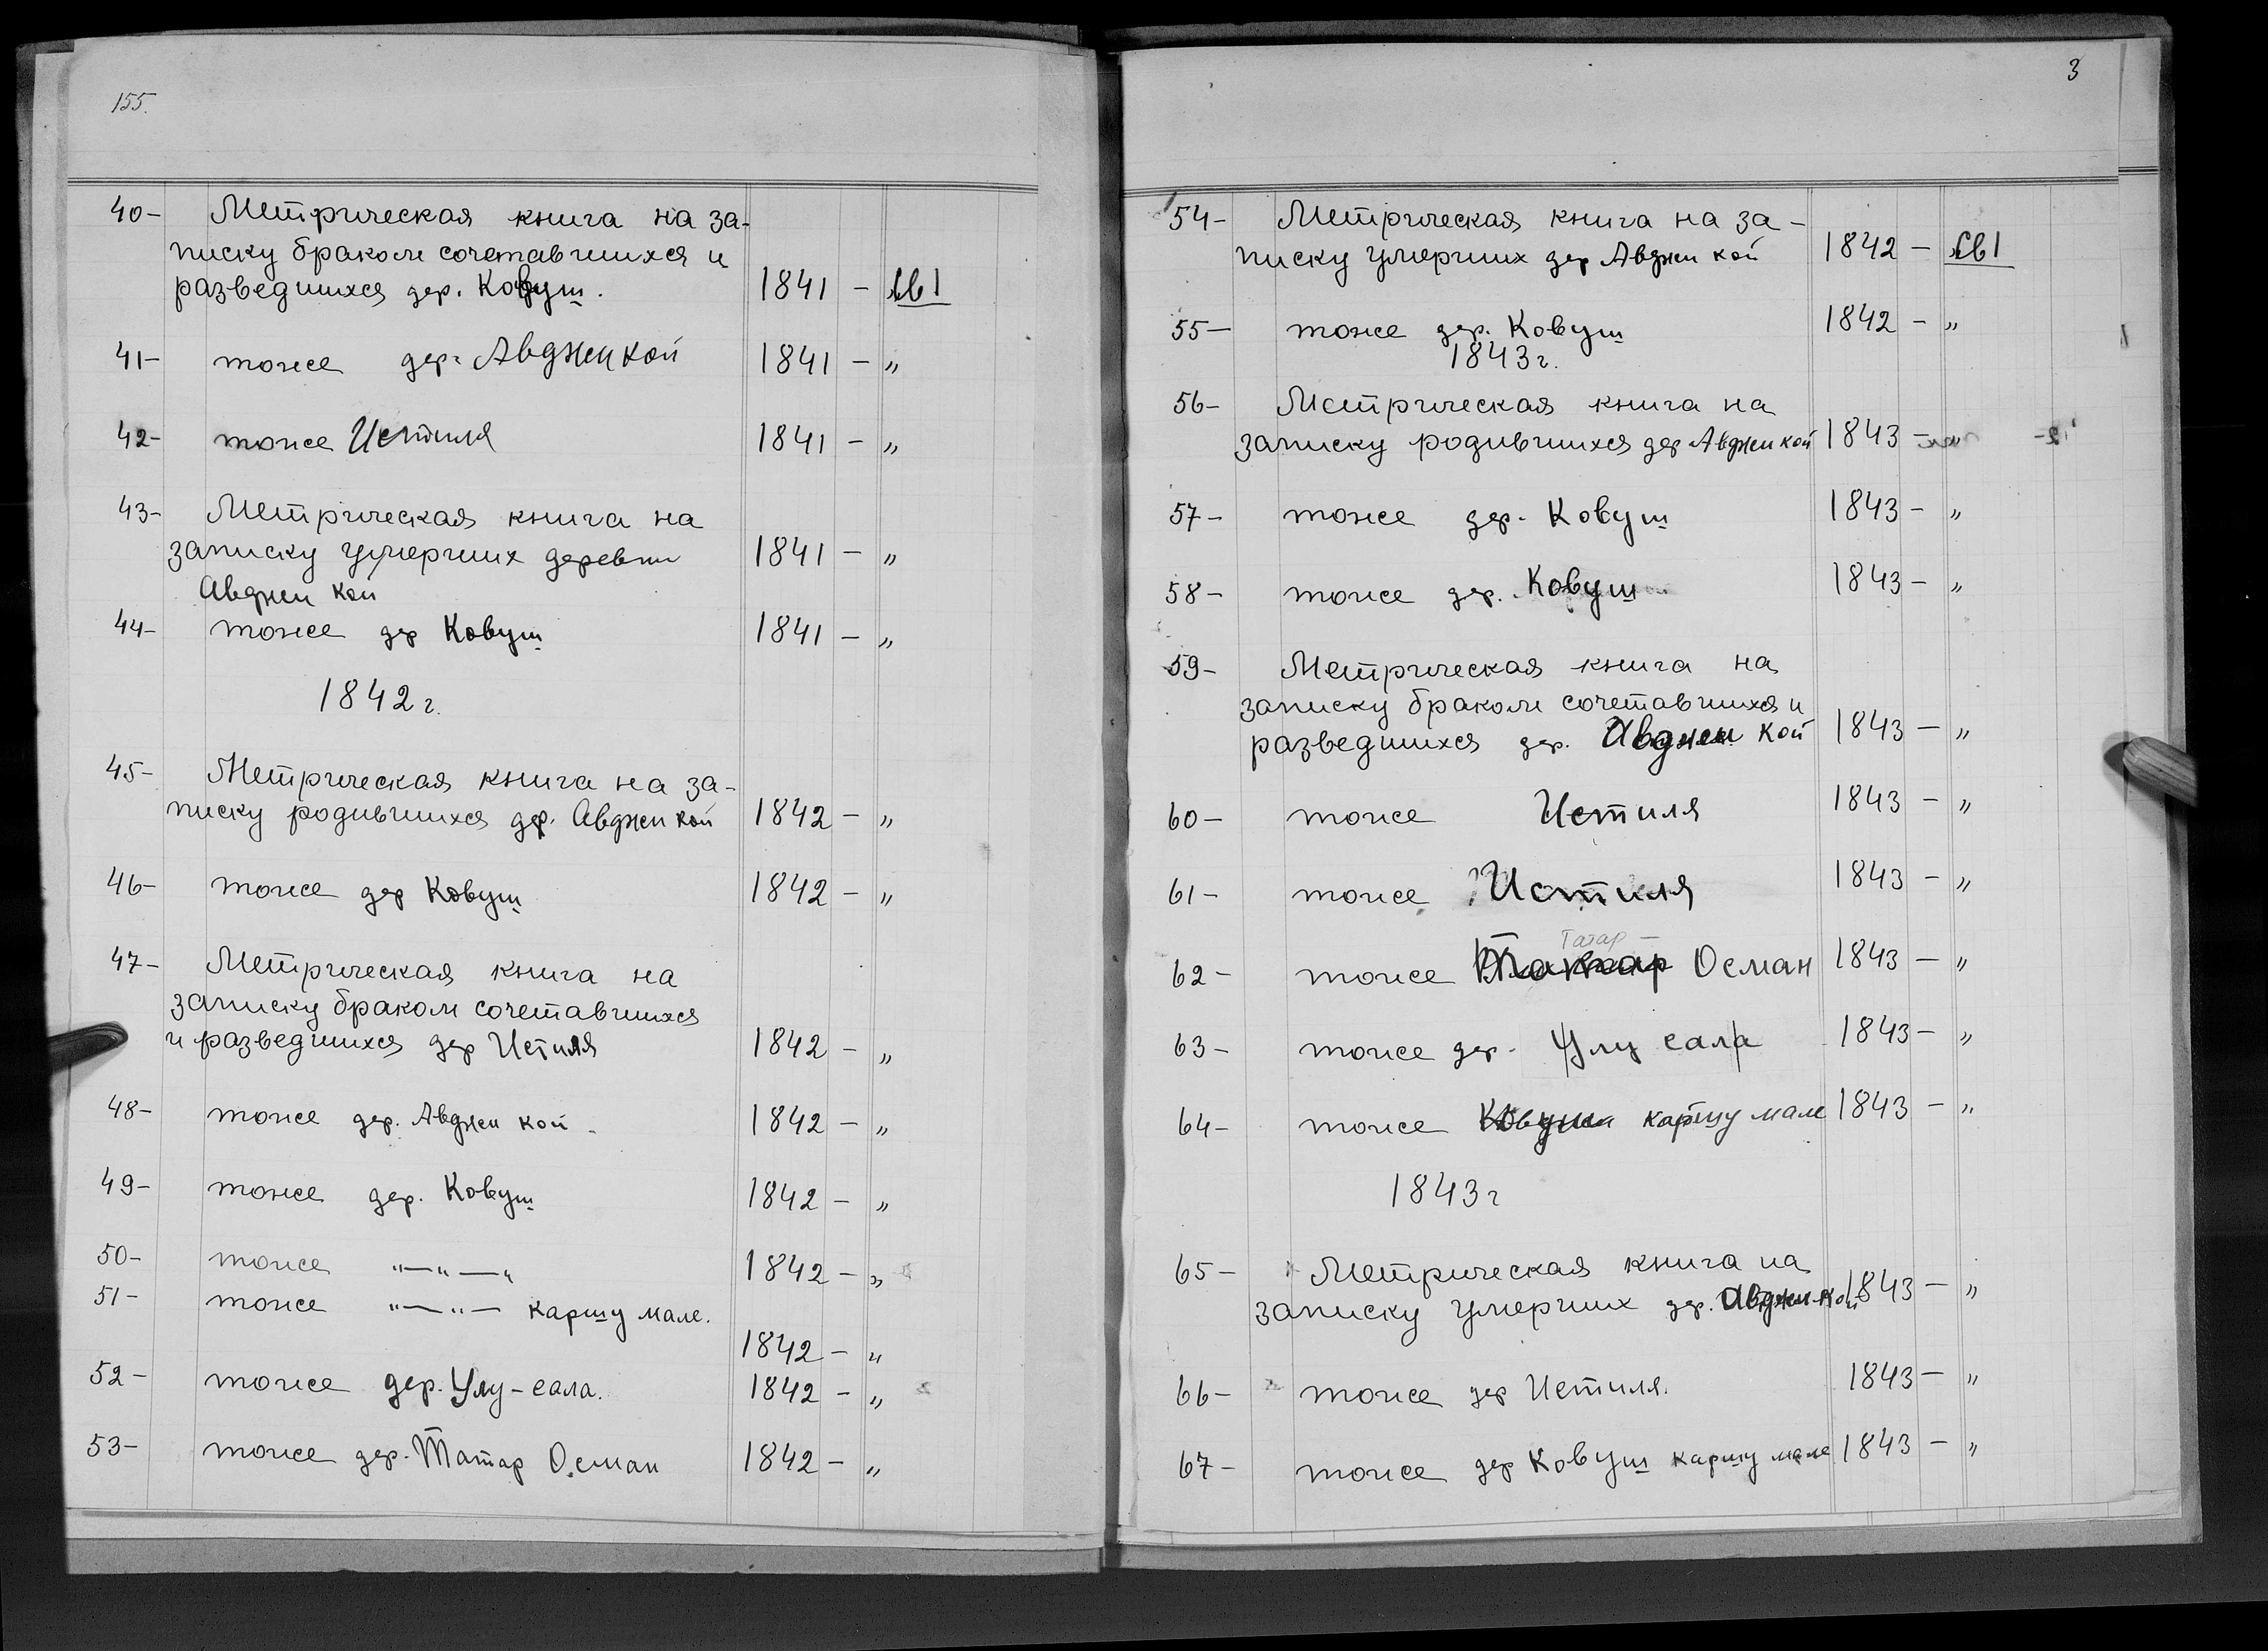 155.
40- Метрическая книга на за-
писку браком сочетавшихся и
разведшихся дер. Ковуш. 1841 - св 1
41- тоже дер. Авджи кой 1841 - "
42- тоже Истиля 1841 - "
43- Метрическая книга на
записку умерших деревни 1841 - "
Авджи кой
44- тоже дер Ковуш 1841 - "
1842 г.
45- Метрическая книга на за-
писку родившихся дер. Авджи кой 1842 - "
46- тоже дер Ковуш 1842 - "
47- Метрическая книга на
записку браком сочетавшихся
и разведшихся дер Истиля 1842 - "
48- тоже дер. Авджи кой - 1842 - "
49- тоже дер. Ковуш 1842 - "
50- тоже "—"—" 1842 - "
51- тоже "—"— каршу мале.
1842 - "
52- тоже дер. Улу-сала. 1842 - "
53- тоже дер. Татар Осман 1842 - "
3
54- Метрическая книга на за-
писку умерших дер Авджи кой 1842 - св 1
55- тоже дер. Ковуш 1842 - "
1843 г.
56- Метрическая книга на
записку родившихся дер Авджи кой 1843 -
57- тоже дер. Ковуш 1843 - "
58- тоже дер. Ковуш 1843 - "
59- Метрическая книга на
записку браком сочетавшихся и
разведшихся дер. Авджи кой 1843 - "
60- тоже Истиля 1843 - "
61- тоже Истиля 1843 - "
Татар
62- тоже Осман 1843 - "
63- тоже дер. Улу сала 1843 - "
64- тоже Ковуш каршу мале 1843 - "
1843 г
65- Метрическая книга на
записку умерших дер. Авджи кой 1843 - "
66- тоже дер Истиля. 1843 - "
67- тоже дер Ковуш каршу мале 1843 - "